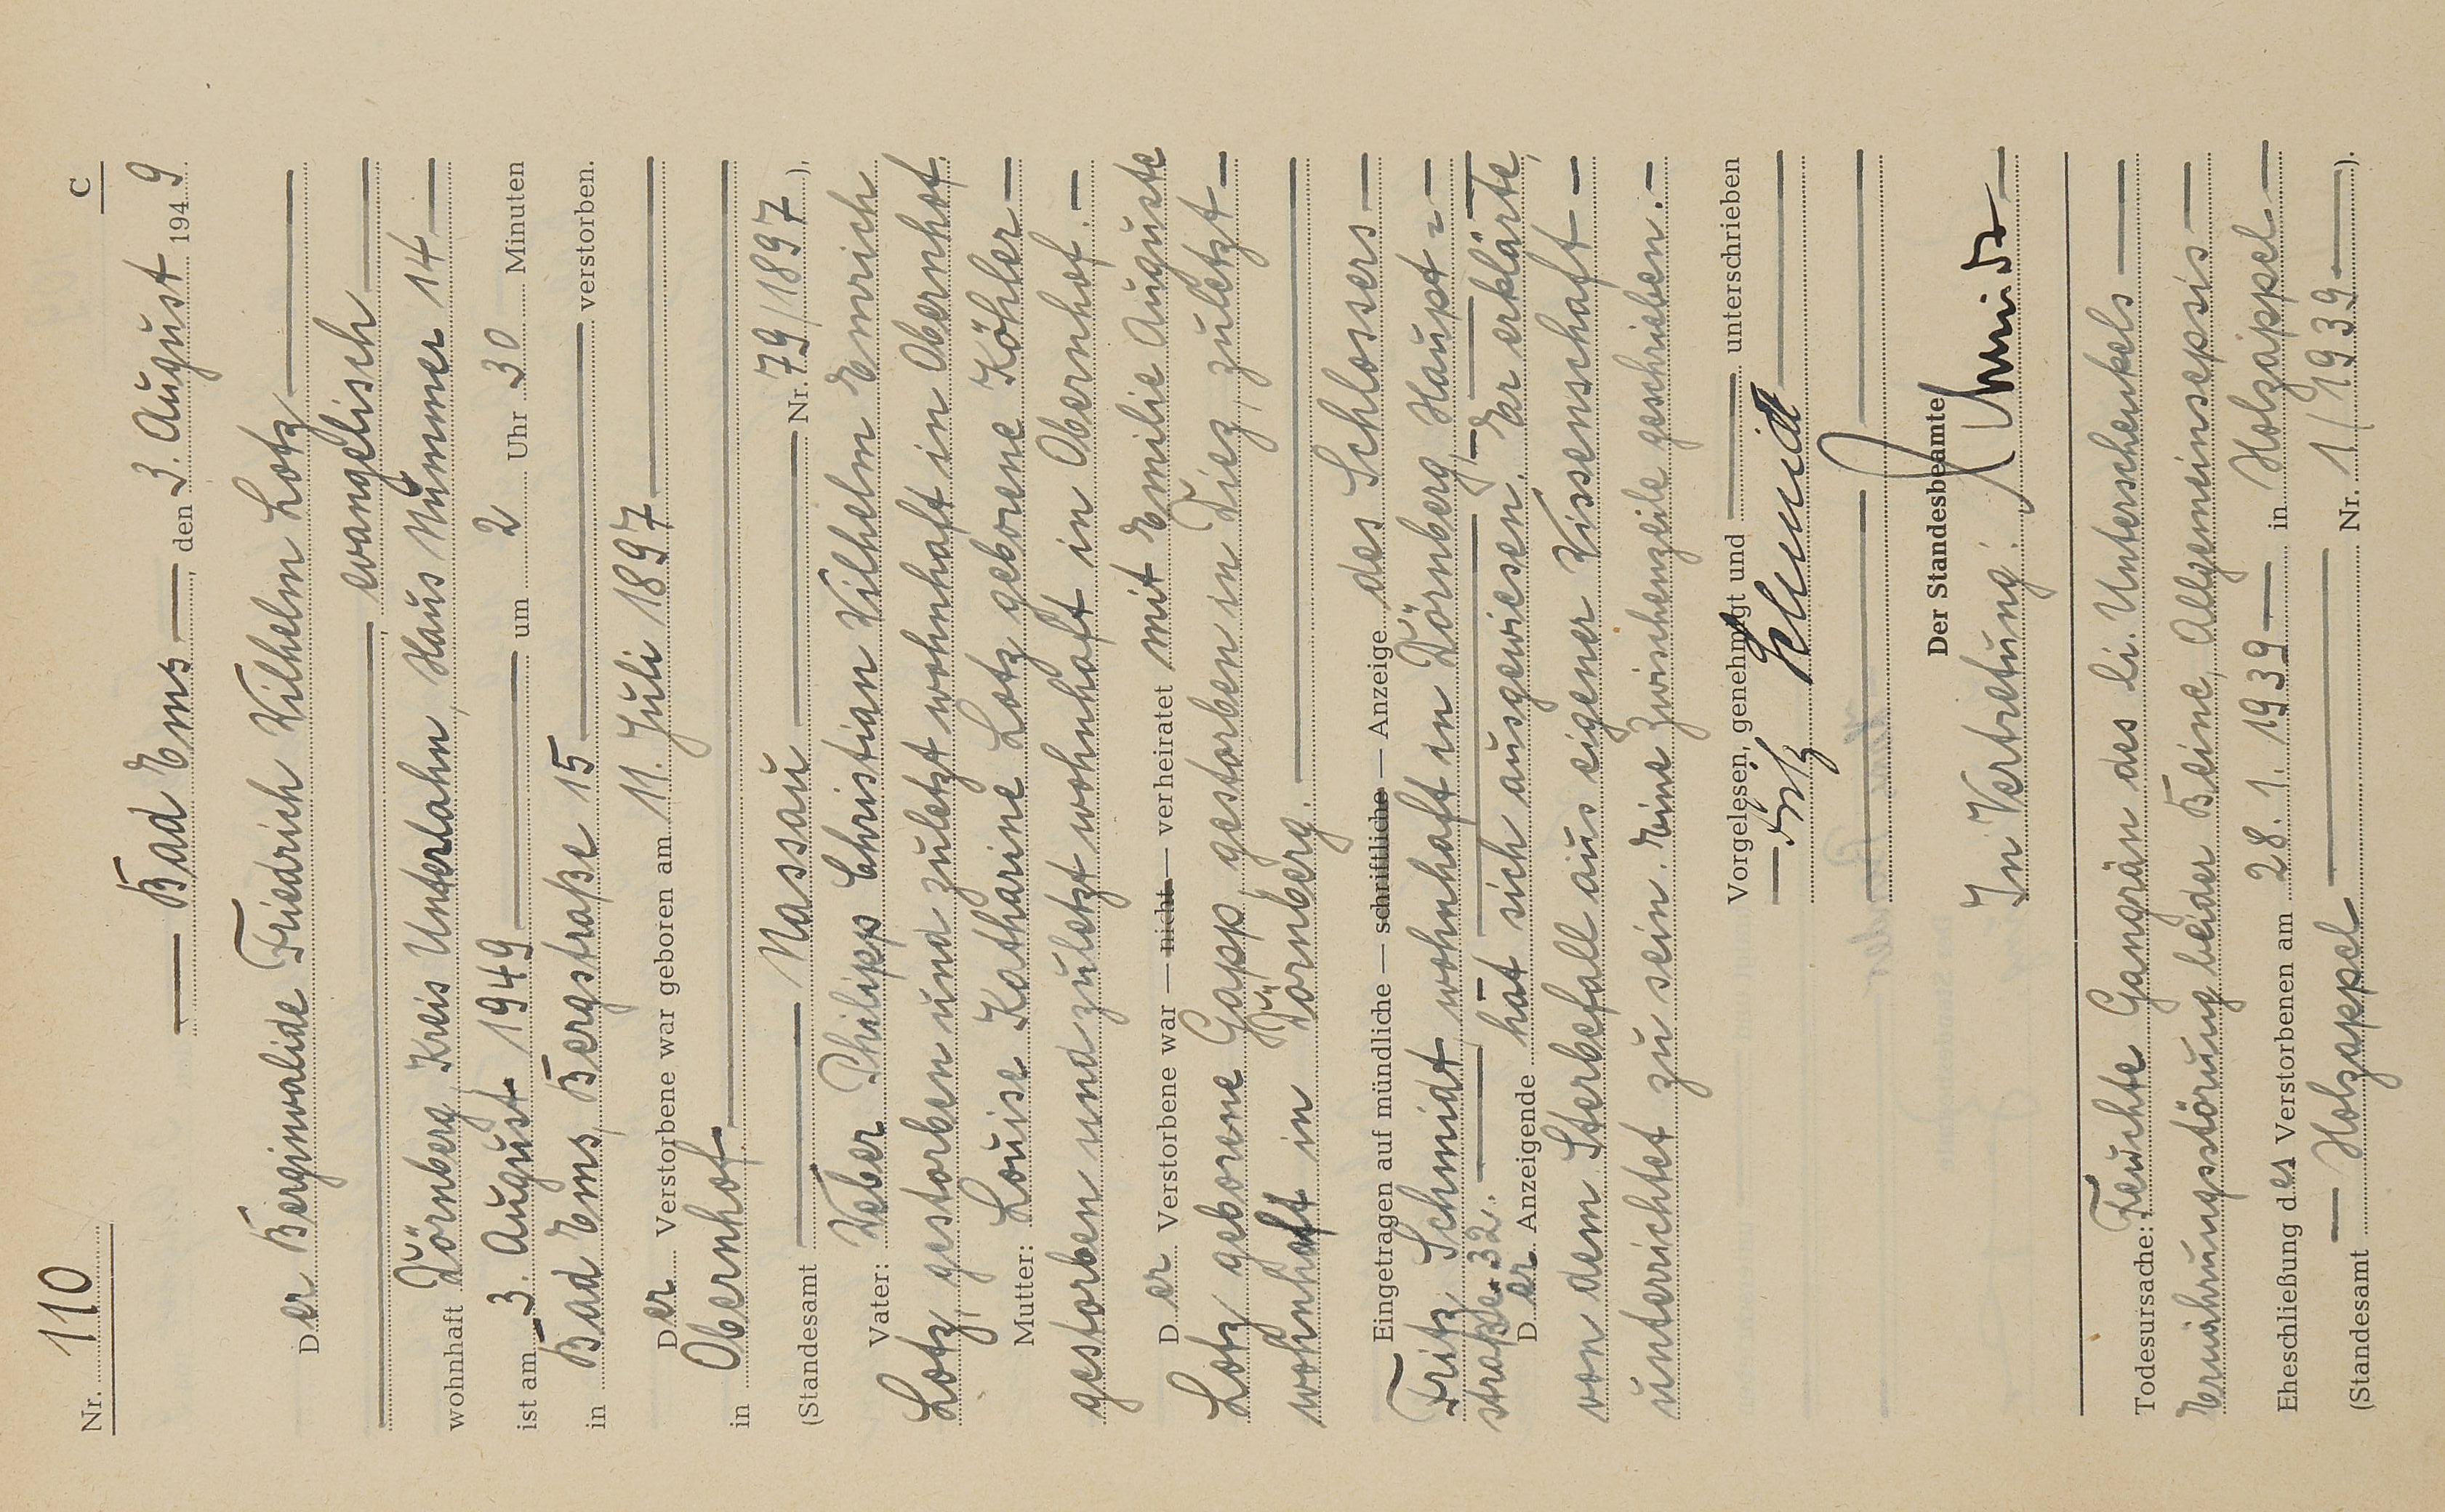 Nr. 110 C
— Bad Ems —, den 3. August 1949
Der Berginvalide Friedrich Wilhelm Lotz —
—, evangelisch —
wohnhaft Dörnberg, Kreis Unterlahn, Haus Nummer 14 —
ist am 3. August 1949 — um 2 Uhr 30 Minuten
in Bad Ems, Bergstraße 15 — verstorben.
Der Verstorbene war geboren am 11. Juli 1897 —
in Obernhof —
(Standesamt — Nassau — Nr. 79/1897),
Vater: Weber Philipp Christian Wilhelm Emrich
Lotz, gestorben und zuletzt wohnhaft in Obernhof.
Mutter: Louise Katharine Lotz geborene Köhler —
gestorben und zuletzt wohnhaft in Obernhof. —
Der Verstorbene war — nicht — verheiratet mit Emilie Auguste
Lotz geborene Gapp, gestorben in Diez, zuletzt —
wohnhaft in Dörnberg. —
Eingetragen auf mündliche — schriftliche — Anzeige des Schlossers —
Fritz Schmidt, wohnhaft in Dörnberg, Haupt- —
straße 32. —
Der Anzeigende hat sich ausgewiesen. Er erklärte,
von dem Sterbefall aus eigener Wissenschaft —
unterrichtet zu sein. Eine Zwischenzeile geschrieben. —
Vorgelesen, genehmigt und — unterschrieben
— Fritz Schmidt —
Der Standesbeamte
In Vertretung: Schmidt —
Todesursache: Feuchte Gangrän des li. Unterschenkels —
Ernährungsstörung beider Beine, Allgemeinsepsis —
Eheschließung des Verstorbenen am 28. 1. 1939 — in Holzappel —
(Standesamt — Holzappel — Nr. 1/1939 —).